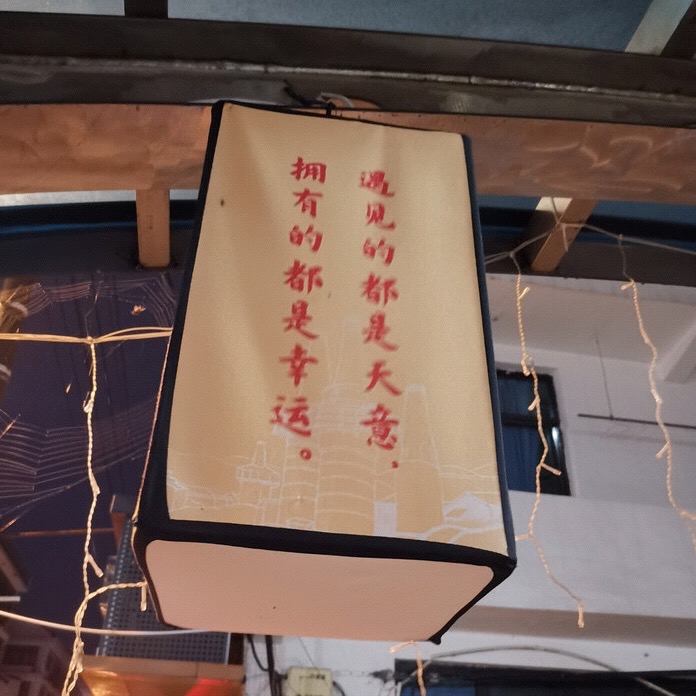 遇见的都是天意，
拥有的都是幸运。